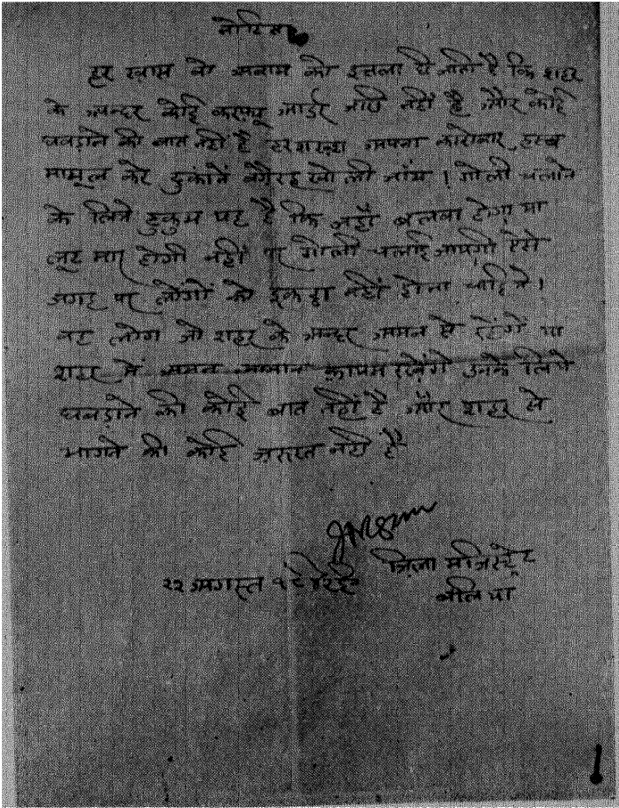 नोटिस
हर खास वो अवाम को इत्तला दी जाती है कि शहर
के अन्दर कोई करफ्यू आर्डर जारी नहीं है और कोई
घबड़ाने की बात नहीं है हर शख्श अपना कारोबार हस्ब
मामूल करे दुकानें बगैरह खोली जांय । गोली चलाने
के लिये हुकुम यह है कि जहाँ बलवा होगा या
लूट मार होगी वहीं पर गोली चलाई जायगी ऐसी
जगह पर लोगों को इकट्ठा नहीं होना चाहिये ।
वह लोग जो शहर के अन्दर अमन से रहेंगे या
शहर में अमन अमान कायम रखेंगे उनके लिये
घबड़ाने की कोई बात नहीं है और शहर से
भागने की कोई जरूरत नहीं है
जिला मजिस्ट्रेट
२२ अगस्त बलिया